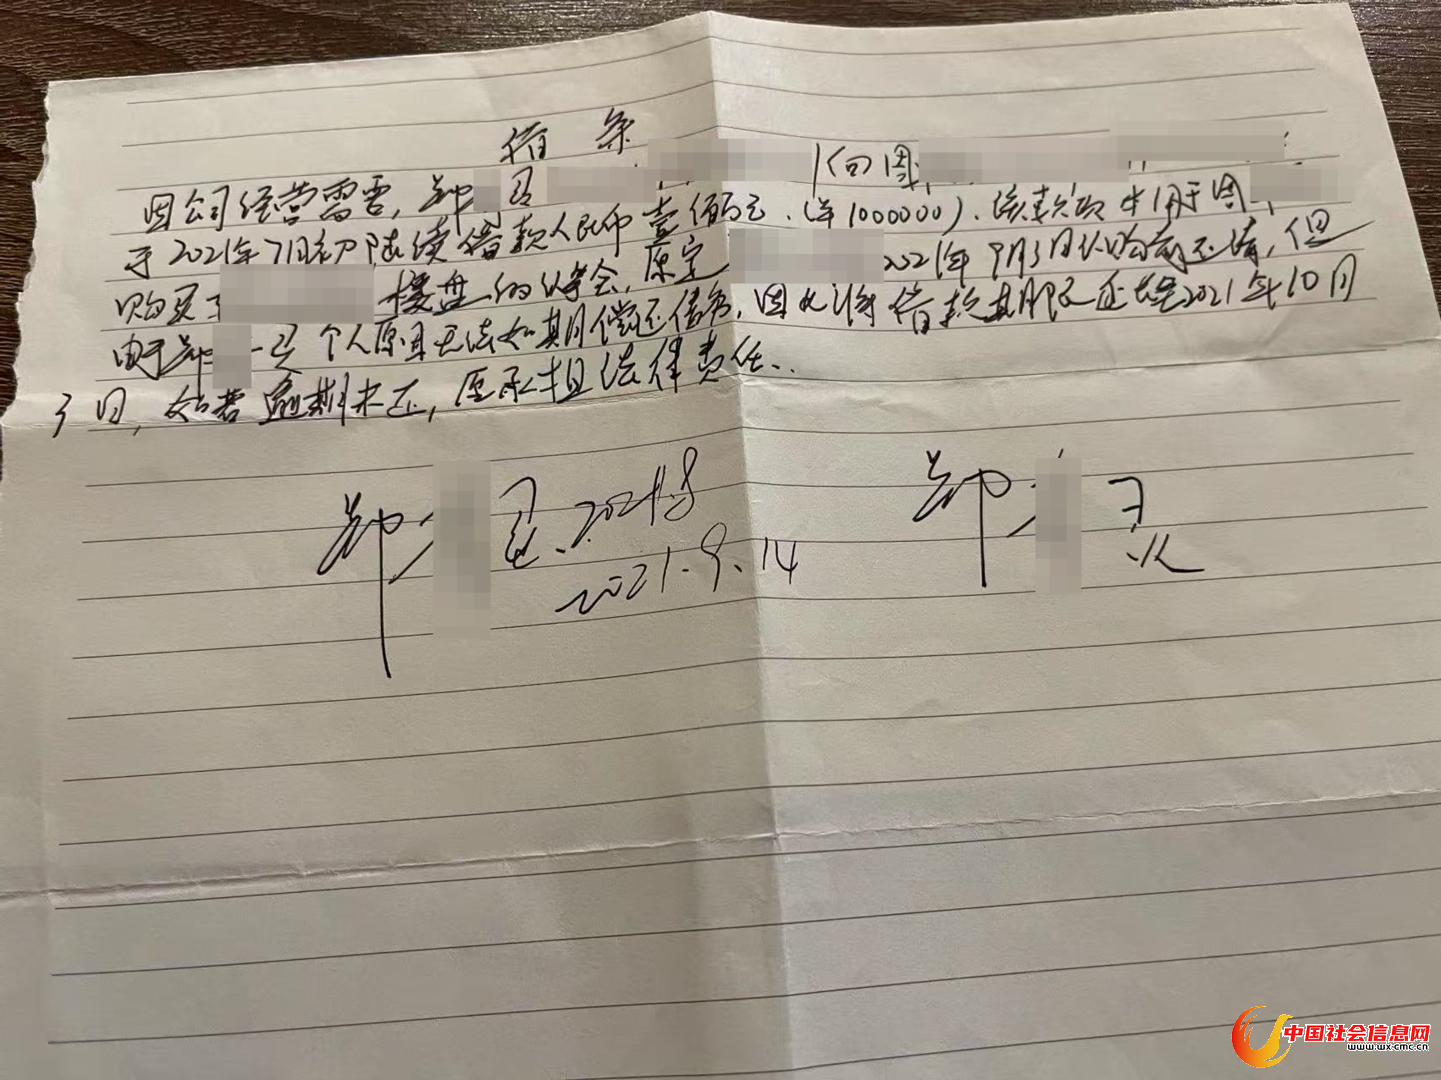 借条
因公司经营需要,郑 向周
于2021年7月初陆续借款人民币壹佰万元.(¥1000000).该款项本用于周
购买了 楼盘的 ,原定 2021年9月3日 前还清,但
由于郑 个人原因无法如期偿还债务,因此将借款期限延迟至2021年10月
3日,如若逾期未还,愿承担法律责任..
郑 郑
2021.9.14
中国社会信息网
www.wx-cmc.cn